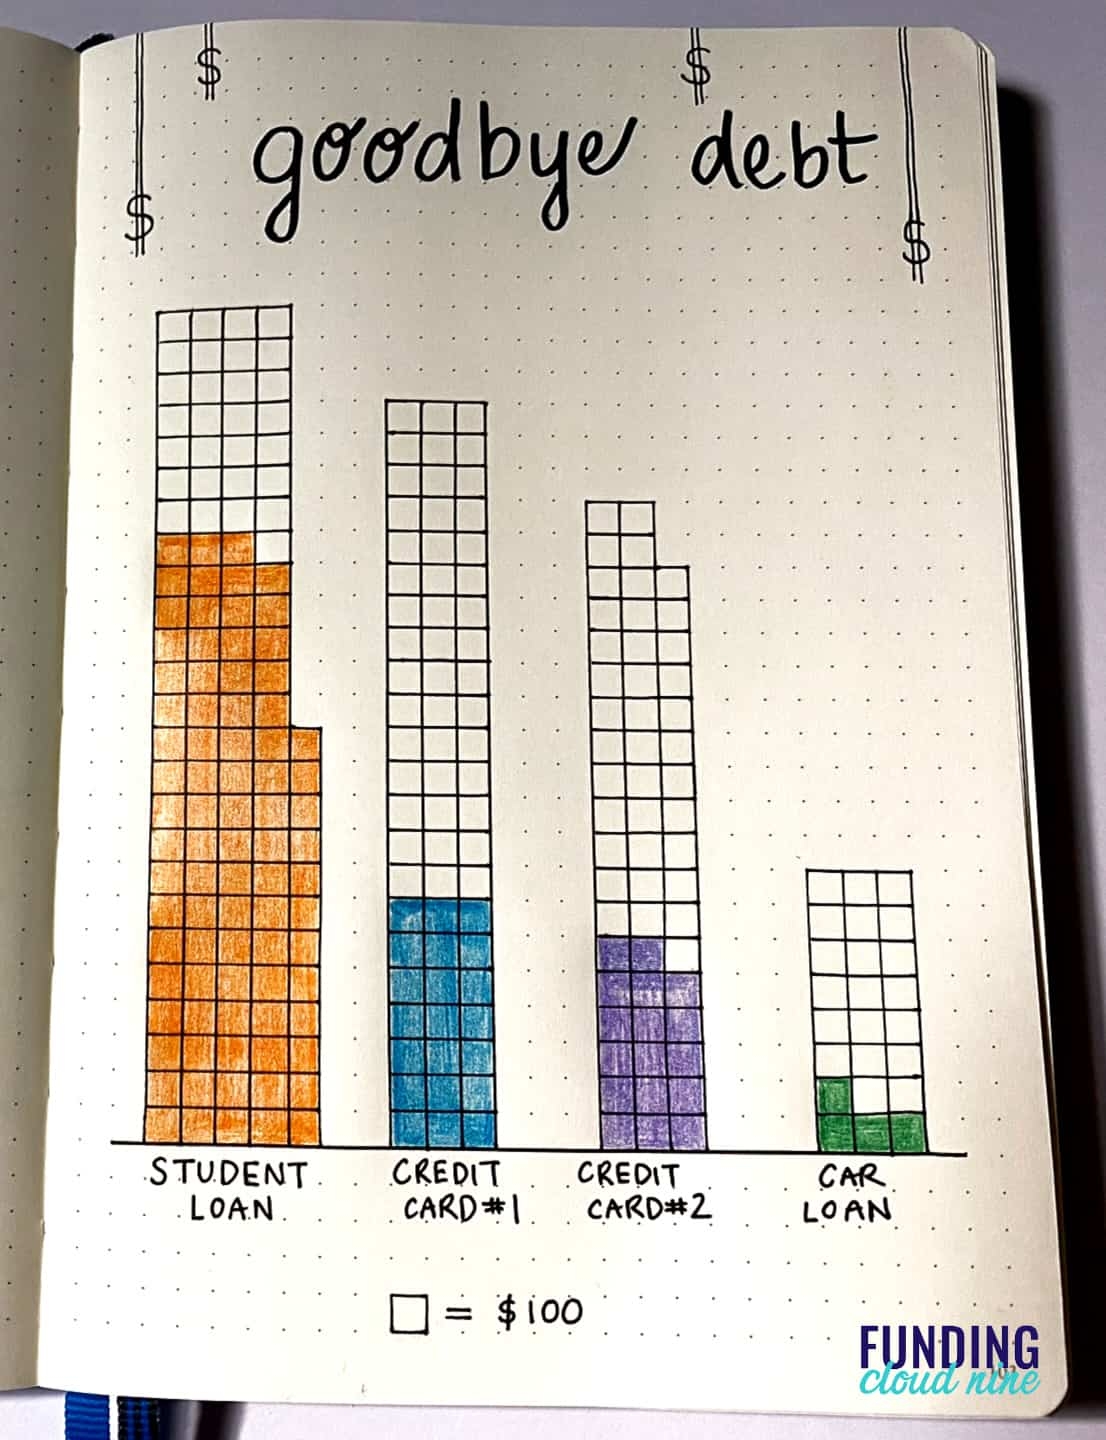 $ $
goodbye debt
$ $
STUDENT LOAN
CREDIT CARD#1
CREDIT CARD#2
CAR LOAN
□ = $100
FUNDING
cloud nine